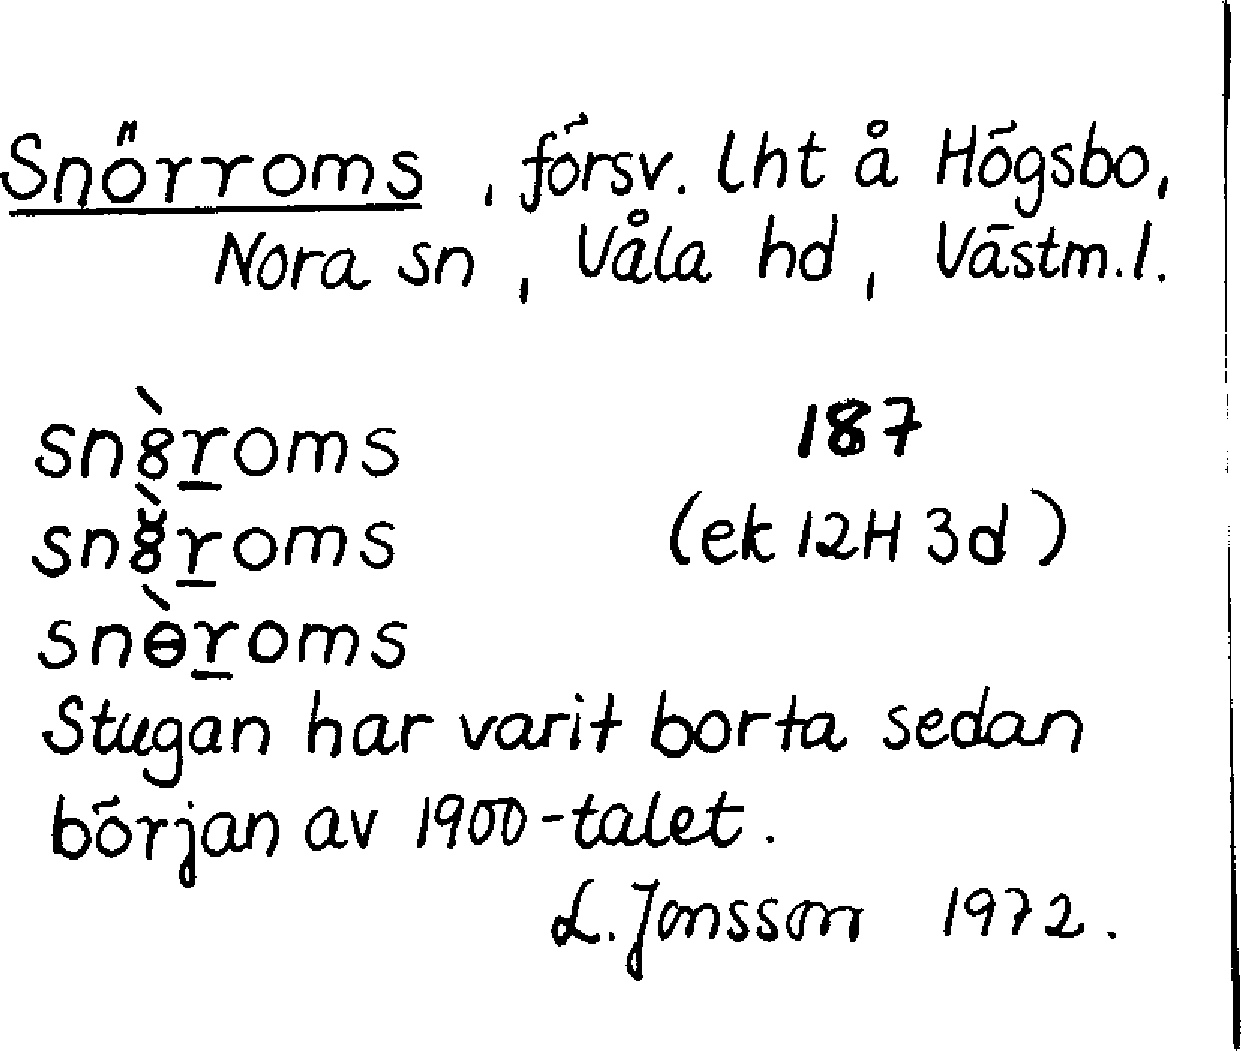 Snörroms, försv. lht å Högsbo,
Nora sn, Våla hd, Västm.l.
sn8̀r̲oms
187
sn8̬̀r̲oms
(ek 12H 3d)
snɵ̀r̲oms
Stugan har varit borta sedan
början av 1900-talet.
L. Jonsson 1972.